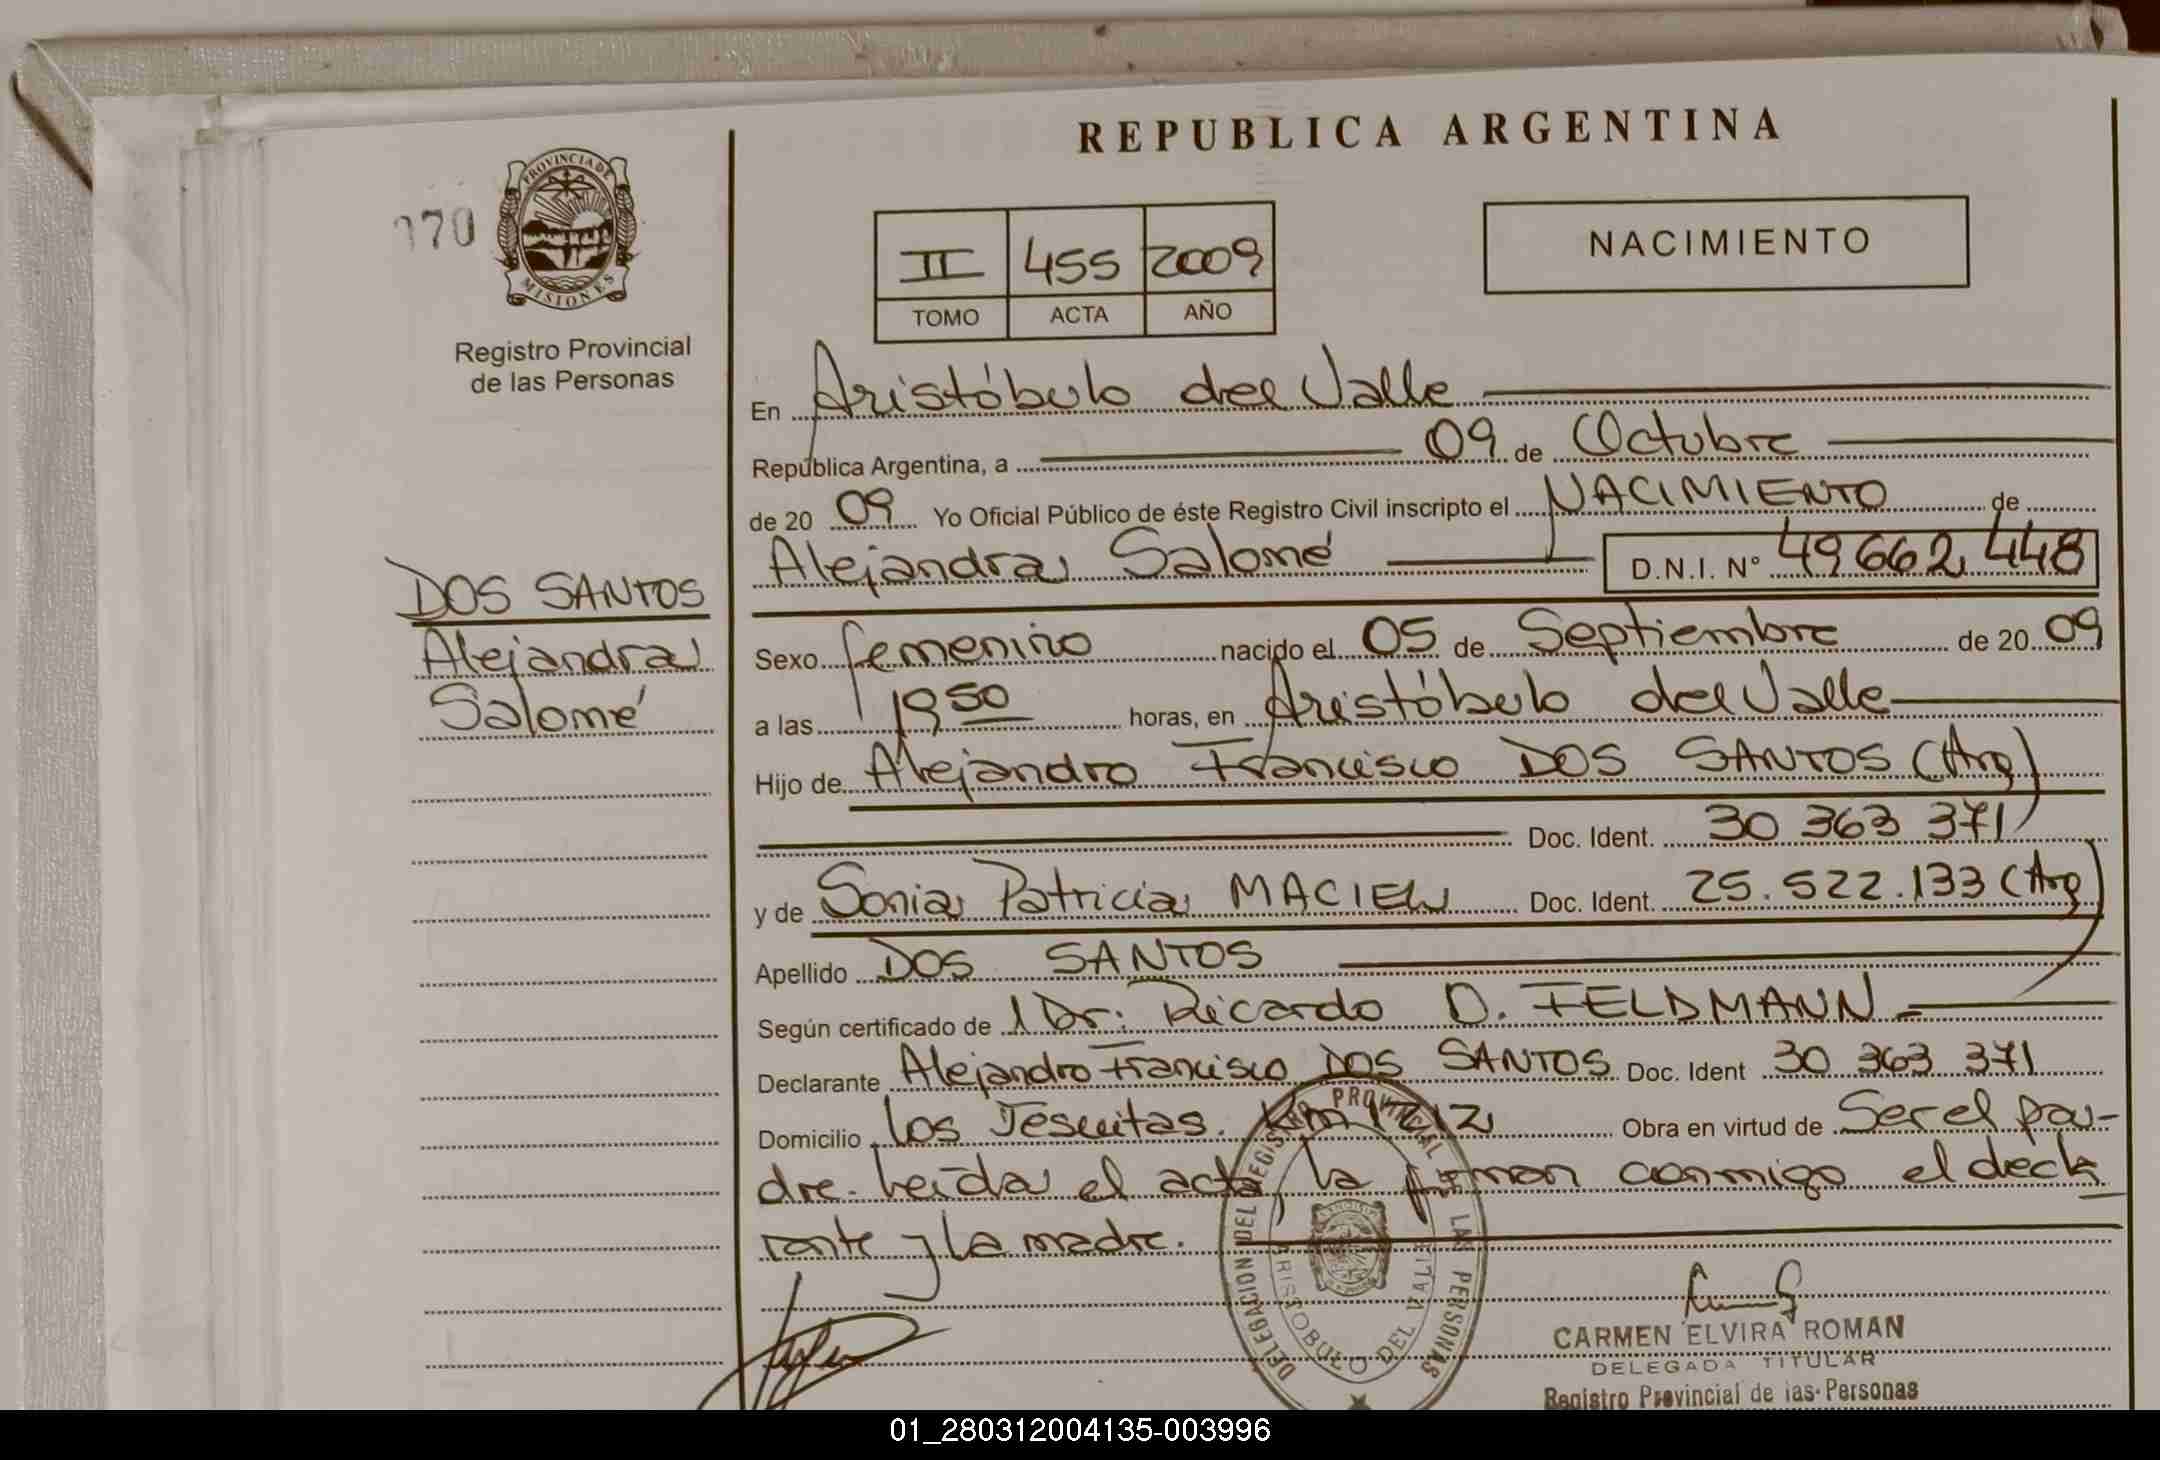 REPUBLICA ARGENTINA
PROVINCIA DE
MISIONES
370
II 455 2009
TOMO ACTA AÑO
NACIMIENTO
Registro Provincial
de las Personas
En Aristóbulo del Valle
República Argentina, a 09 de Octubre
de 20 09 Yo Oficial Público de éste Registro Civil inscripto el NACIMIENTO de
Alejandra Salomé D.N.I. Nº 49662448
DOS SANTOS
Alejandra
Salomé
Sexo femenino nacido el 05 de Septiembre de 20 09
a las 19 50 horas, en Aristóbulo del Valle
Hijo de Alejandro Francisco DOS SANTOS (Arg)
Doc. Ident. 30 363 371
y de Sonia Patricia MACIEL Doc. Ident. 25.522.133 (Arg)
Apellido DOS SANTOS
Según certificado de Dr. Ricardo D. FELDMANN
Declarante Alejandro Francisco DOS SANTOS Doc. Ident 30 363 371
Domicilio Los Jesuitas. Km 1212 Obra en virtud de Ser el pa-
dre. Leída el acta, la firman conmigo el decla
rante y la madre.
DELEGACION DEL REGISTRO PROVINCIAL DE LAS PERSONAS
ARISTOBULO DEL VALLE
CARMEN ELVIRA ROMAN
DELEGADA TITULAR
Registro Provincial de las Personas
01_280312004135-003996